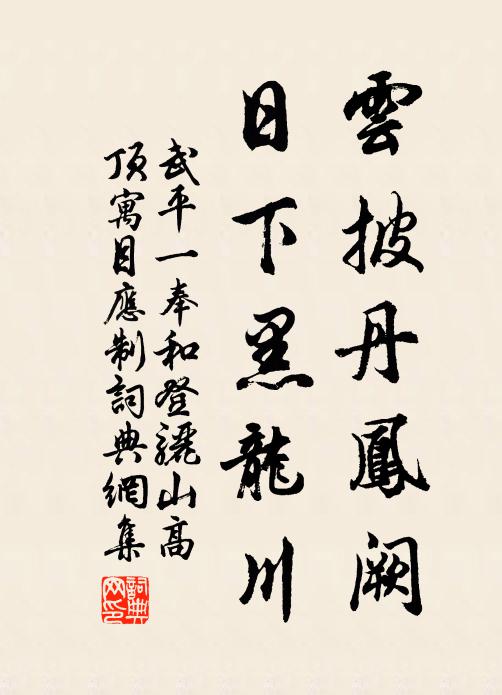 雲披丹鳳闕
日下黑龍川
武平一奉和登驪山高
頂寓目應制詞典網集
詞典
网印